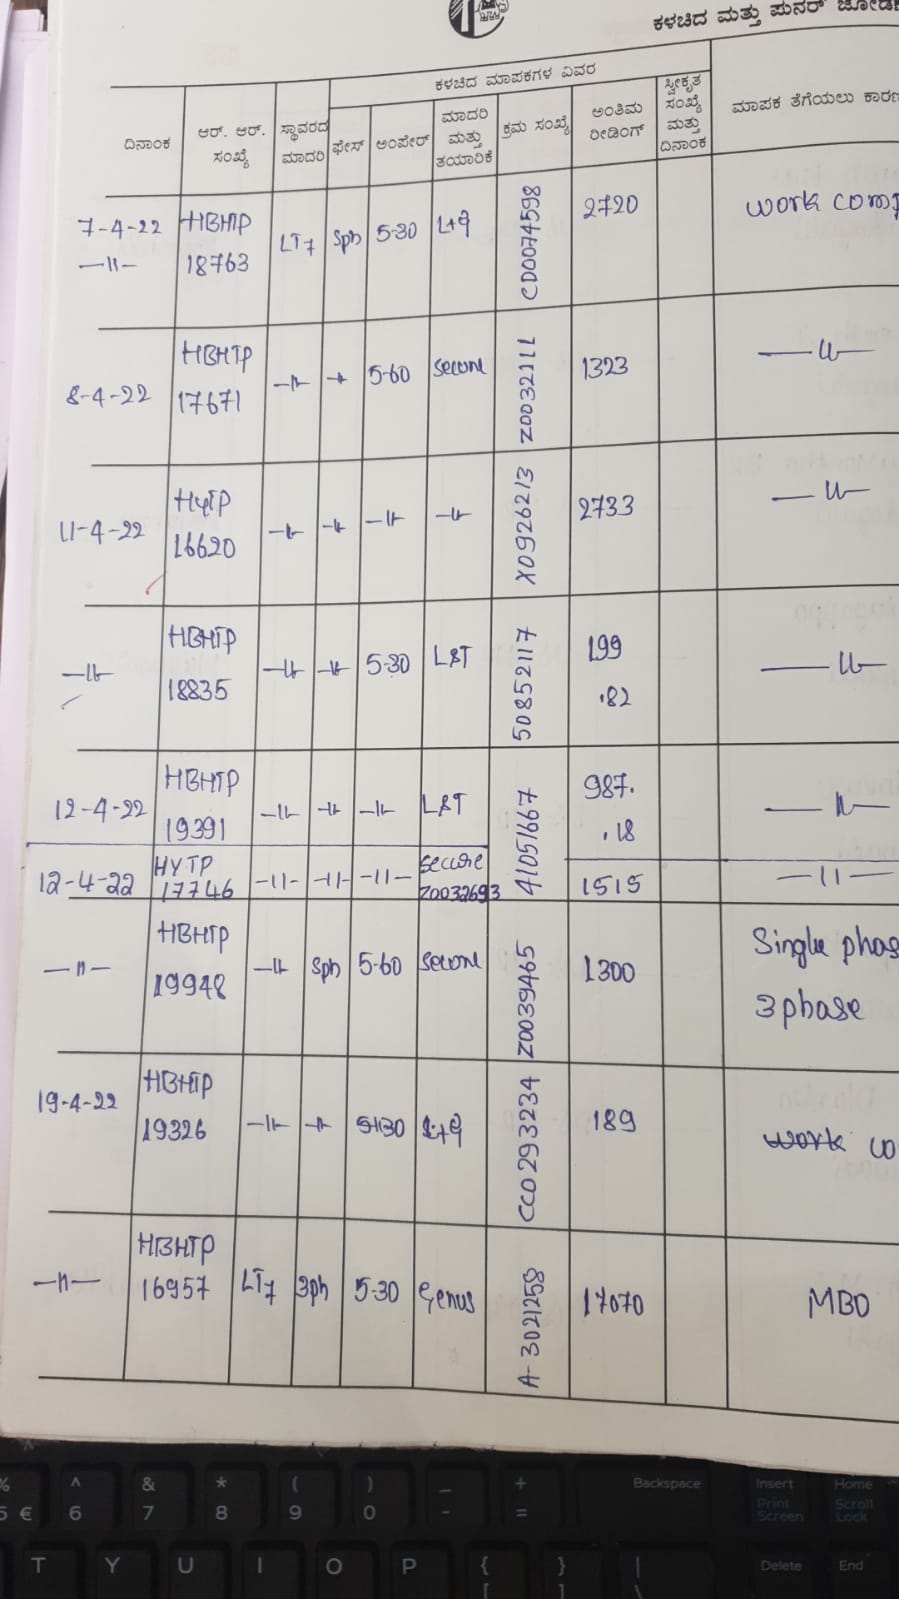 ಕಳಚಿದ ಮತ್ತು ಪುನರ್
ಕಳಚಿದ ಮಾಪಕಗಳ ವಿವರ
ದಿನಾಂಕ ಆರ್. ಆರ್. ಸಂಖ್ಯೆ ಸ್ಥಾವರದ ಮಾದರಿ ಫೇಸ್ ಅಂಪೇರ್ ಮಾದರಿ ಮತ್ತು ತಯಾರಿಕೆ ಕ್ರಮ ಸಂಖ್ಯೆ ಅಂತಿಮ ರೀಡಿಂಗ್ ಸ್ವೀಕೃತ ಸಂಖ್ಯೆ ಮತ್ತು ದಿನಾಂಕ ಮಾಪಕ ತೆಗೆಯಲು
7-4-22 HBHTP LT7 Sph 5-30 L+g CD0074598 2720 work
—11— 18763
8-4-22 HBHTP 17671 —11— —11— 5-60 Secure Z0032111 1323 —11—
11-4-22 HYTP 16620 —11— —11— —11— —11— X0926213 2733 —11—
—11— HBHTP 18835 —11— —11— 5-30 L&T 50852117 199 .82 —11—
12-4-22 HBHTP 19391 —11— —11— —11— L&T 41051667 987. .18 —11—
12-4-22 HYTP 17746 —11— —11— —11— Secure Z0032693 1515 —11—
—11— HBHTP 19948 —11— Sph 5-60 Secure Z0039465 1300 Single
3 phase
19-4-22 HBHTP 19326 —11— —11— 5-30 L+g CC0293234 189 work
—11— HBHTP 16957 LT7 3ph 5-30 Genus A-3021258 17070 MBO
% ^ & * ( ) _ + Backspace Insert Home
5 € 6 7 8 9 0 - = Print Screen Scroll Lock
T Y U I O P { } | Delete End